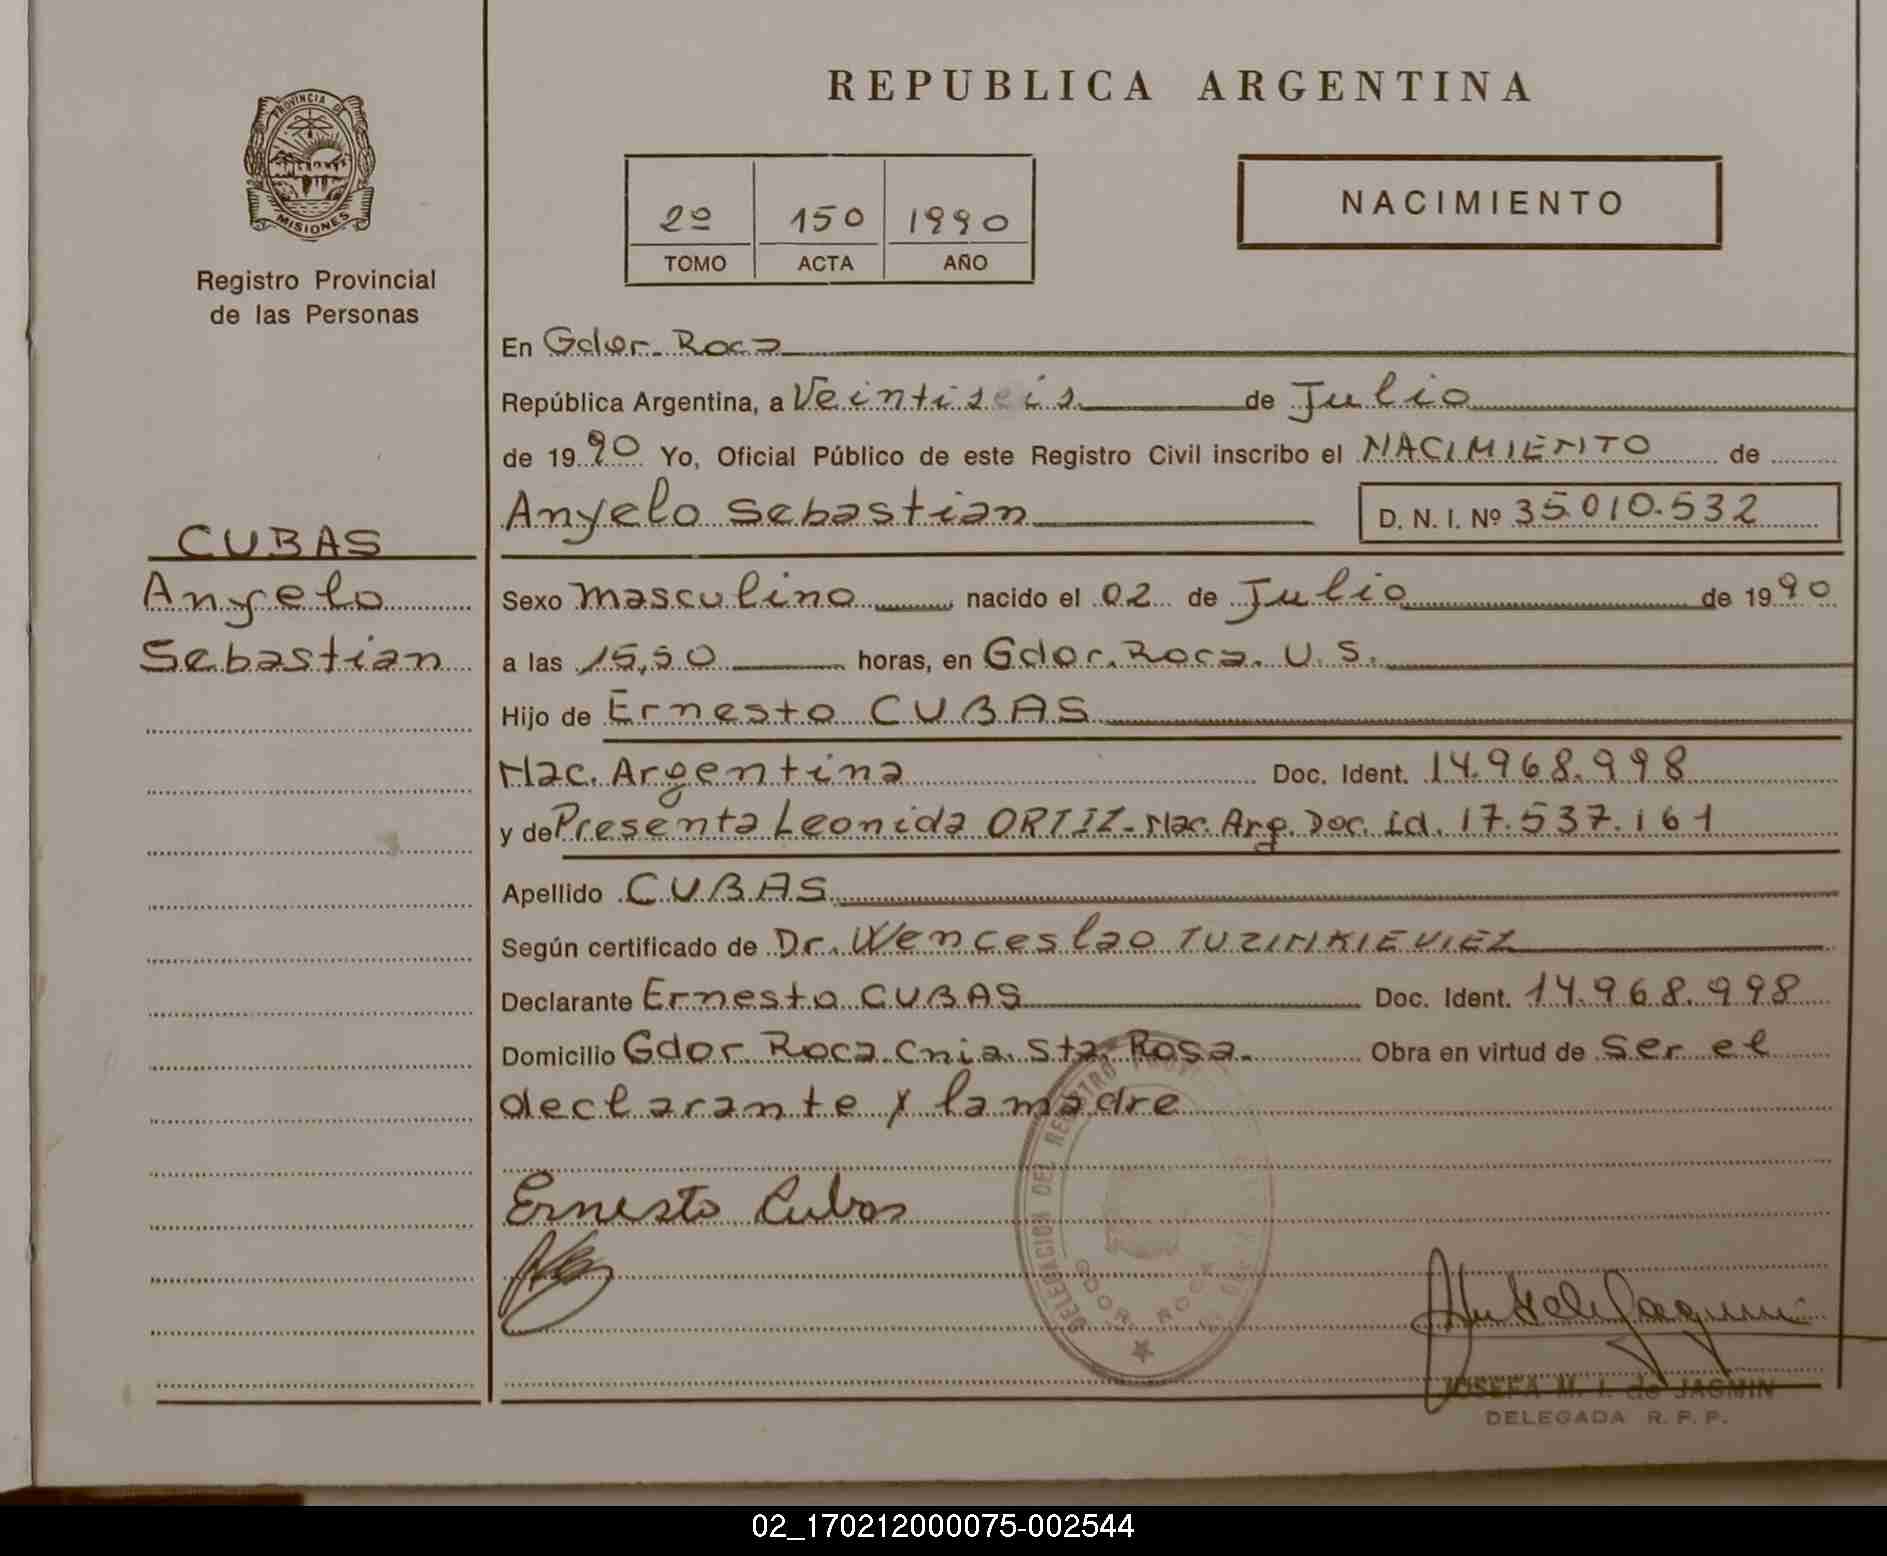 REPUBLICA ARGENTINA
PROVINCIA DE
MISIONES
Registro Provincial
de las Personas
2º 150 1990
TOMO ACTA AÑO
NACIMIENTO
En Gdor. Roca
República Argentina, a Veintiseis de Julio
de 1990 Yo, Oficial Público de este Registro Civil inscribo el NACIMIENTO de
Anyelo Sebastian D. N. I. Nº 35.010.532
CUBAS
Anyelo
Sebastian
Sexo masculino nacido el 02 de Julio de 1990
a las 15,50 horas, en Gdor. Roca. U.S.
Hijo de Ernesto CUBAS
Nac. Argentina Doc. Ident. 14.968.998
y de Presenta Leonida ORTIZ - Nac. Arg. Doc. id. 17.537.161
Apellido CUBAS
Según certificado de Dr. Wenceslao TUZINKIEVIEZ
Declarante Ernesto CUBAS Doc. Ident. 14.968.998
Domicilio Gdor Roca Cnia. Sta. Rosa. Obra en virtud de Ser el
declarante y la madre
Ernesto Cubas
DELEGACION DEL REGISTRO
GDOR. ROCA
JOSEFA M. I. de JASMIN
DELEGADA R. P. P.
02_170212000075-002544